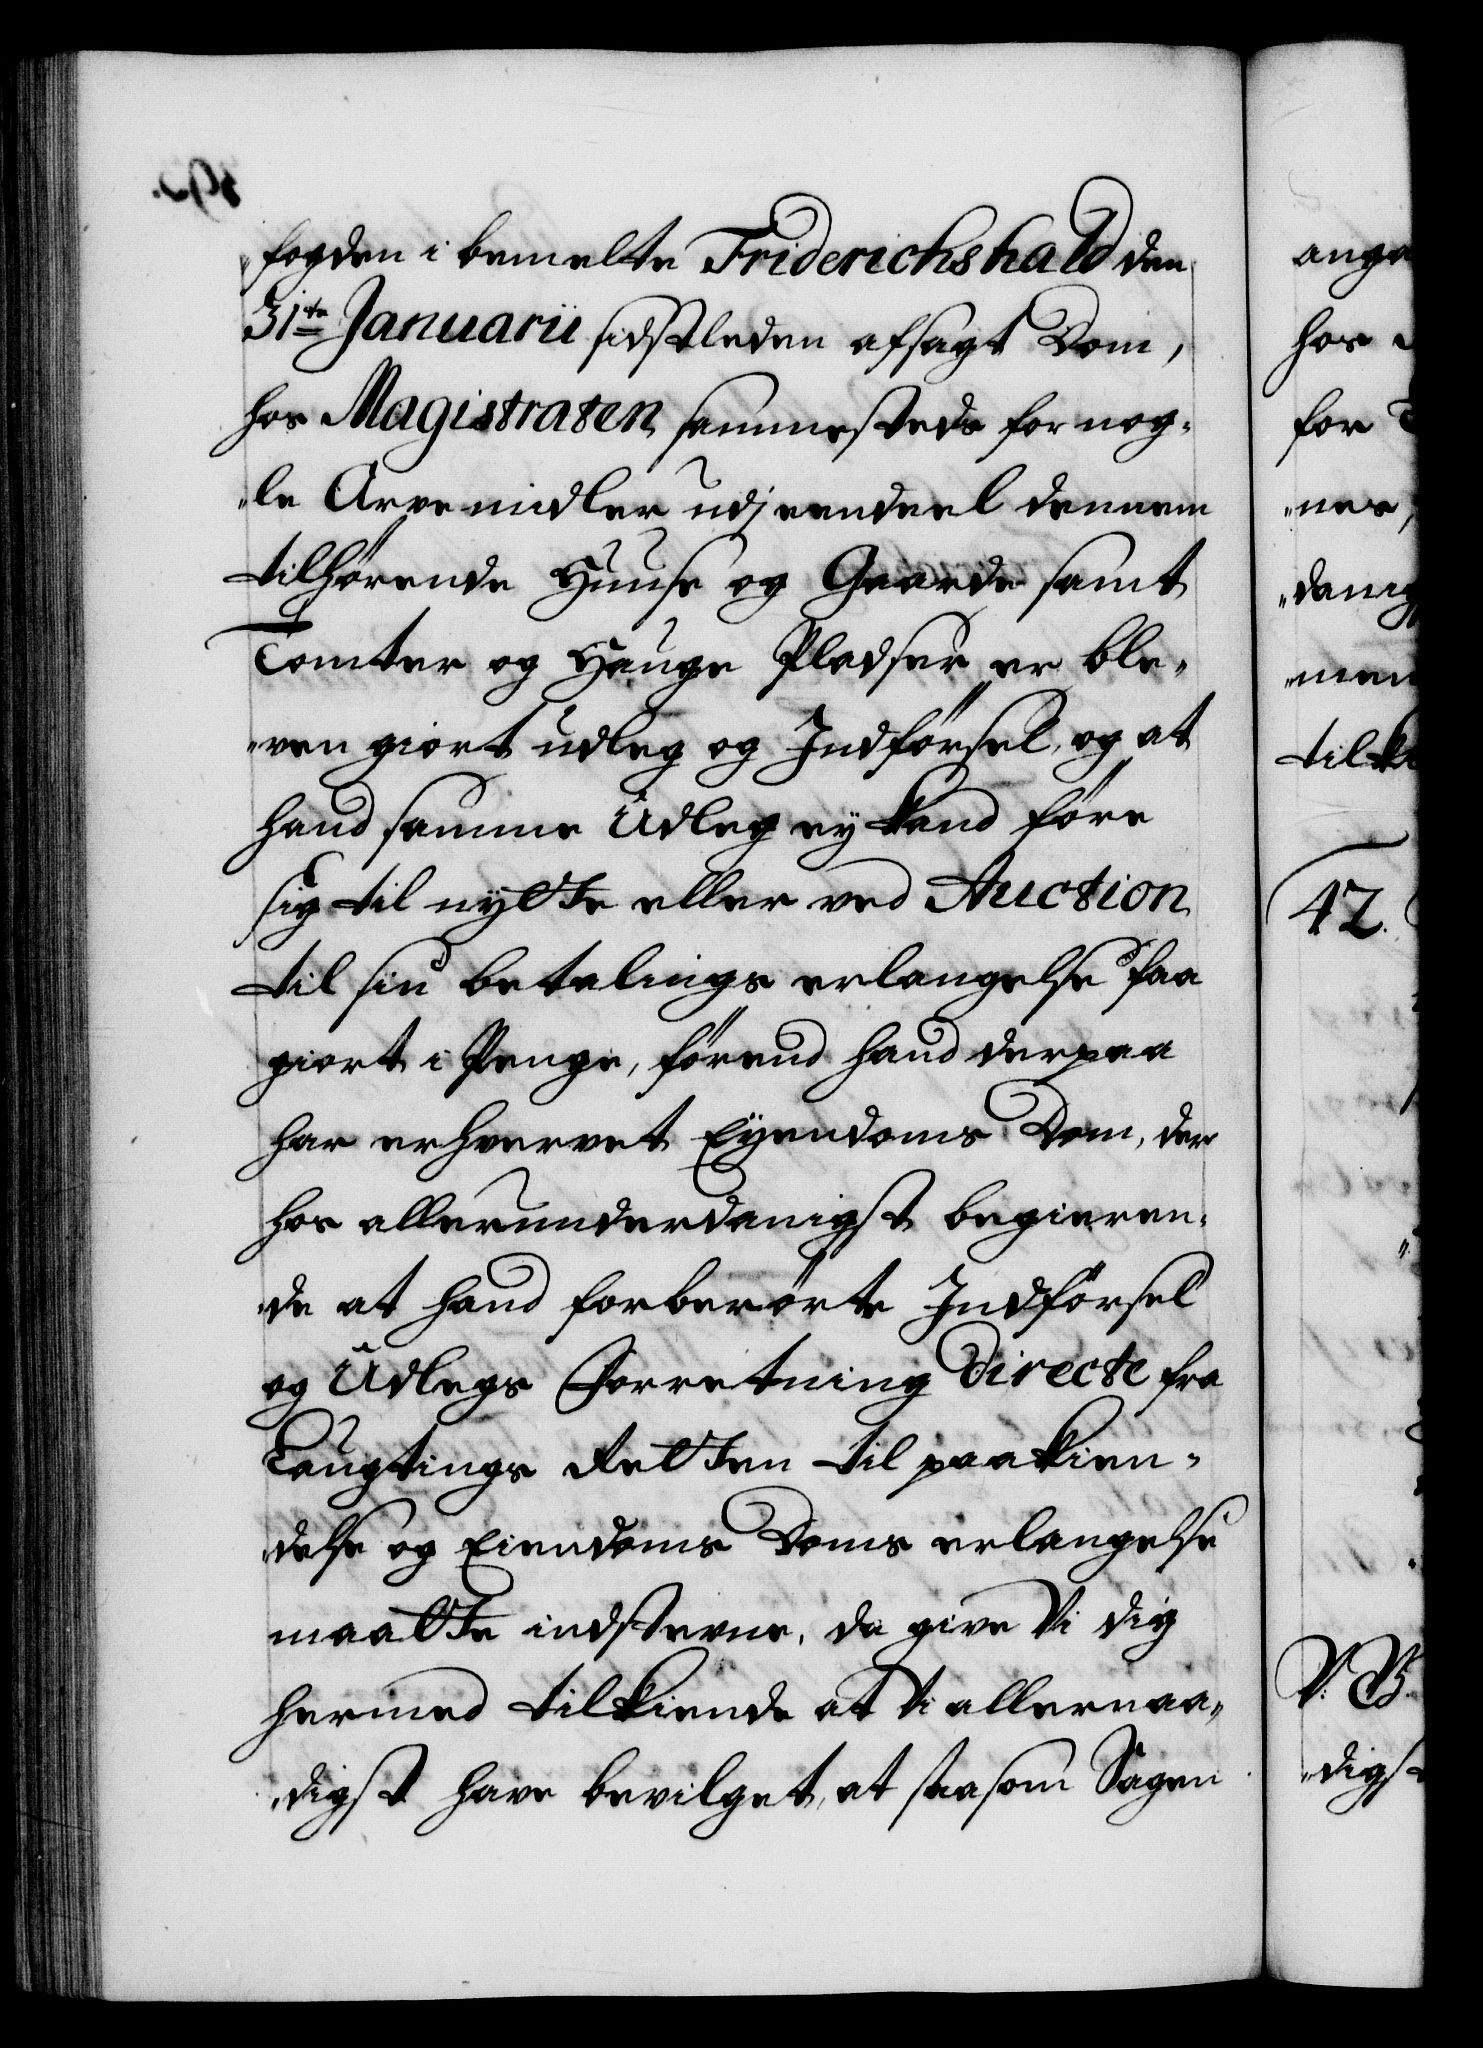 "fogden i bemelte Friderichshald den
31te Januarii sidstleden afsagt Dom,
hos Magistraten sammesteds for nog-
"le Arvemidler udj eendeel dennem
tilhørende Huuse og Gaarde samt
Tomter og Hauge Pladser er ble-
"ven giort udleg og Indførsel, og at
hand samme Udleg ey kand føre
sig til nytte eller ved Auction
til sin betalings erlangelse faa
giort i Penge, førend hand derpaa
har erhvervet Eyendoms Dom, der
hos allerunderdanigst begieren-
"de at hand forberørte Indførsel
og Udlegs Forretning directe fra
Laugtings Retten til paakien-
"delse og Eiendoms Doms erlangelse
maatte indstevne, da give Vi dig
hermed tilkiende at Vi allernaa-
"digst have bevilget, at saasom Sagen
hos
for
"nes,
42.
"digst